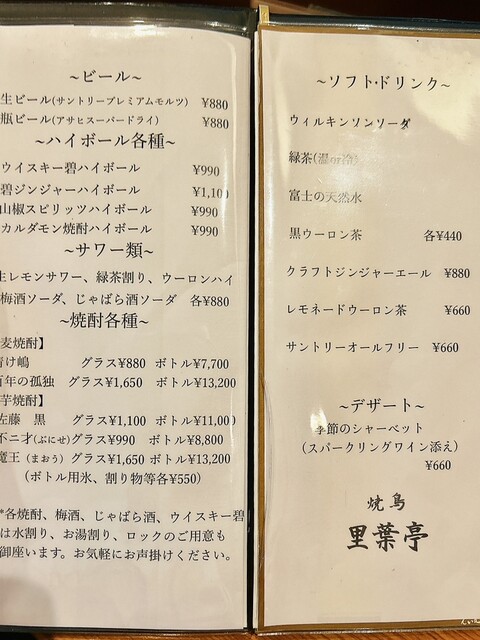 ～ビール～
生ビール(サントリープレミアムモルツ) ¥880
瓶ビール(アサヒスーパードライ) ¥880
～ハイボール各種～
ウイスキー碧ハイボール ¥990
碧ジンジャーハイボール ¥1,100
山椒スピリッツハイボール ¥990
カルダモン焼酎ハイボール ¥990
～サワー類～
生レモンサワー、緑茶割り、ウーロンハイ
梅酒ソーダ、じゃばら酒ソーダ 各¥880
～焼酎各種～
麦焼酎】
青け嶋 グラス¥880 ボトル¥7,700
百年の孤独 グラス¥1,650 ボトル¥13,200
芋焼酎】
佐藤 黒 グラス¥1,100 ボトル¥11,000
不二才(ぶにせ)グラス¥990 ボトル¥8,800
魔王(まおう)グラス¥1,650 ボトル¥13,200
(ボトル用氷、割り物等各¥550)
*各焼酎、梅酒、じゃばら酒、ウイスキー碧
は水割り、お湯割り、ロックのご用意も
御座います。お気軽にお声掛けください。
～ソフト・ドリンク～
ウィルキンソンソーダ
緑茶(温or冷)
富士の天然水
黒ウーロン茶 各¥440
クラフトジンジャーエール ¥880
レモネードウーロン茶 ¥660
サントリーオールフリー ¥660
～デザート～
季節のシャーベット
(スパークリングワイン添え)
¥660
焼鳥
里葉亭